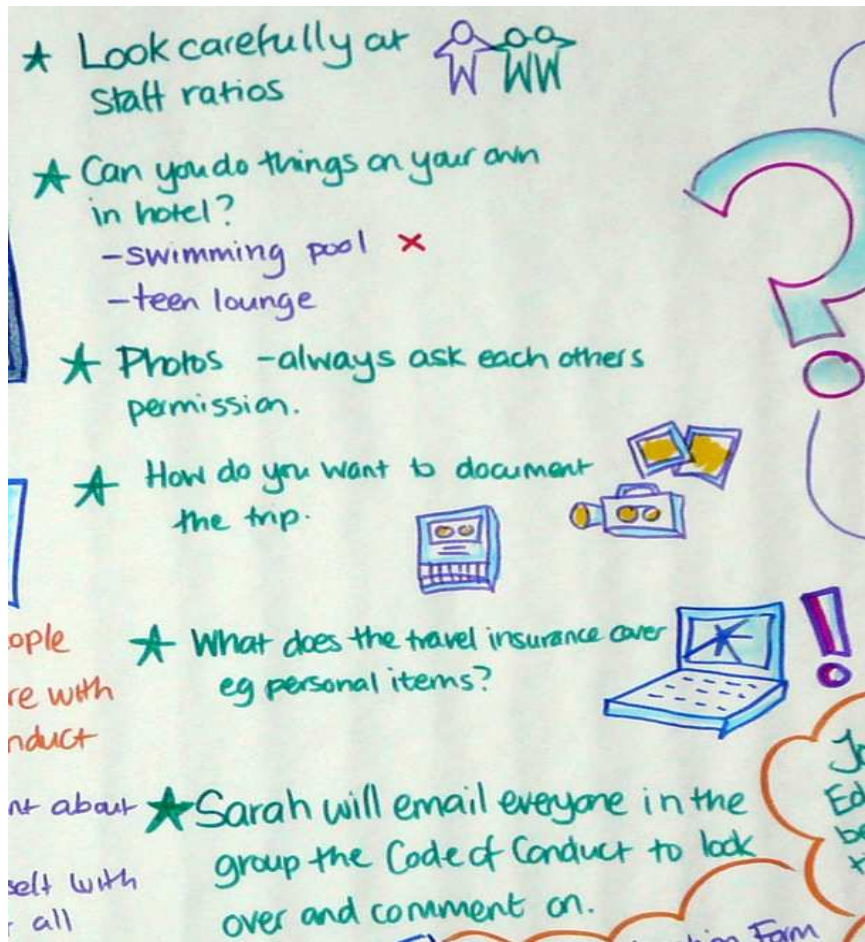 ★ Look carefully at
staff ratios
★ Can you do things on your own
in hotel?
-swimming pool ×
-teen lounge
★ Photos -always ask each others
permission.
★ How do you want to document
the trip.
★ What does the travel insurance cover
eg personal items?
★ Sarah will email everyone in the
group the Code of Conduct to look
over and comment on.
about
with
all
with
Form